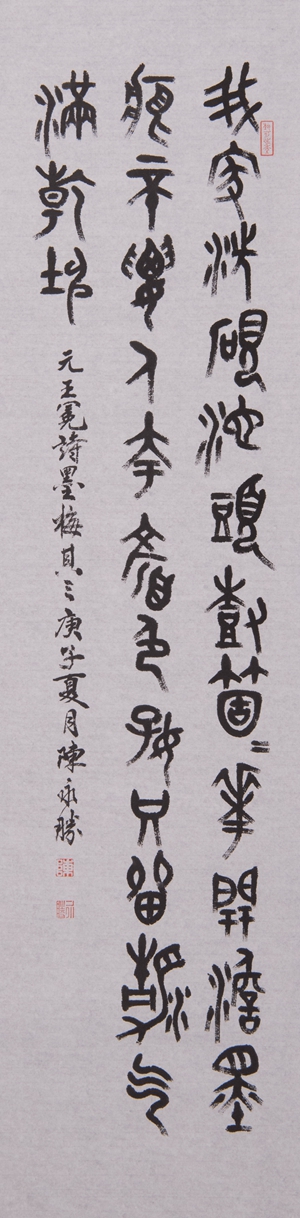 我家洗硯池頭樹箇〻華開澹墨
痕不要人夸顏色好只留清气
滿乾坤
元王冕詩墨梅其三庚子夏月陳永勝
陳